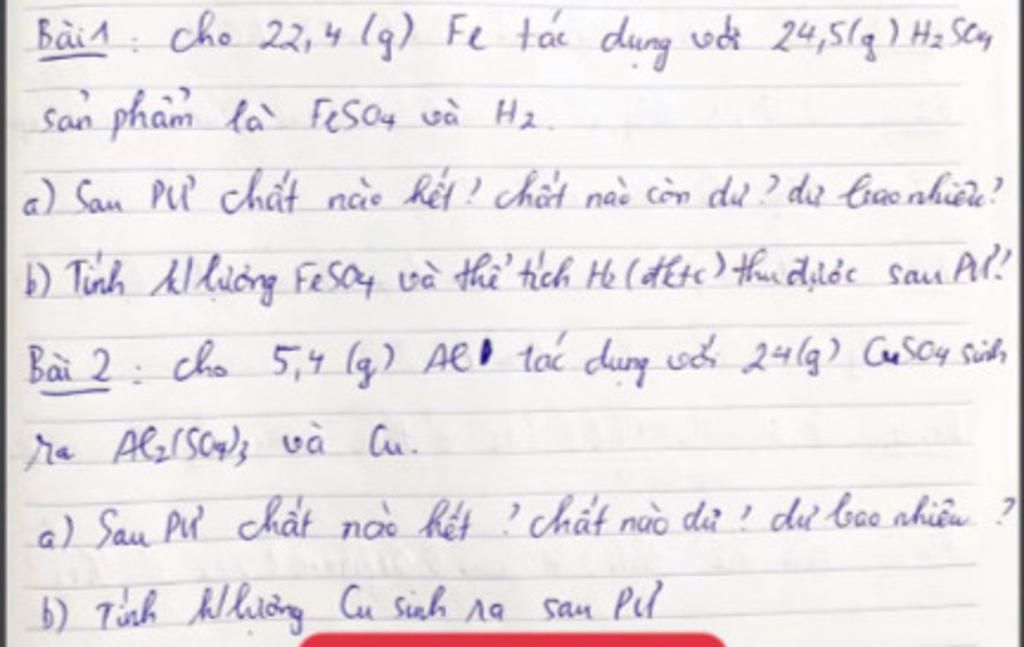 Bài 1 : cho 22,4 (g) Fe tác dụng với 24,5 (g) H2SO4
sản phẩm là FeSO4 và H2.
a) Sau PƯ chất nào hết? chất nào còn dư? dư bao nhiêu?
b) Tính k/lượng FeSO4 và thể tích H2 (đktc) thu được sau PƯ?
Bài 2 : cho 5,4 (g) Al tác dụng với 24 (g) CuSO4 sinh
ra Al2(SO4)3 và Cu.
a) Sau PƯ chất nào hết? chất nào dư? dư bao nhiêu?
b) Tính k/lượng Cu sinh ra sau PƯ